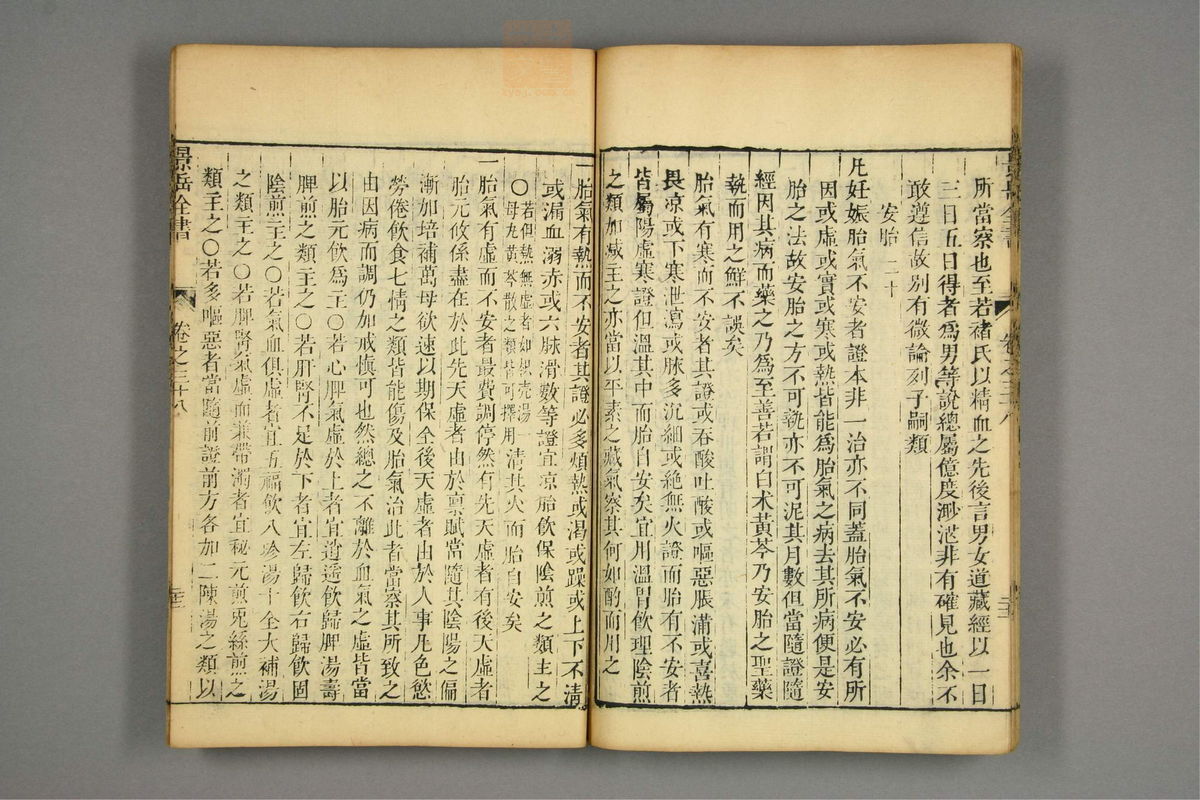 所當察也至若褚氏以精血之先後言男女道藏經以一日
三日五日得者爲男等說總屬億度渺茫非有確見也余不
敢遵信故别有微論列子嗣類
安胎 二十
凡妊娠胎氣不安者證本非一治亦不同蓋胎氣不安必有所
因或虛或實或寒或熱皆能爲胎氣之病去其所病便是安
胎之法故安胎之方不可執亦不可泥其月數但當隨證隨
經因其病而藥之乃爲至善若謂白术黄芩乃安胎之聖藥
執而用之鮮不誤矣
胎氣有寒而不安者其證或吞酸吐酸或嘔惡脹滿或喜熱
畏凉或下寒泄瀉或脉多沉細或絶無火證而胎有不安者
皆屬陽虛寒證但溫其中而胎自安矣宜用溫胃飲理陰煎
之類加减主之亦當以平素之藏氣察其何如酌而用之
一胎氣有熱而不安者其證必多煩熱或渴或躁或上下不清
或漏血溺赤或六脉滑數等證宜凉胎飲保陰煎之類主之
○若但熱無虛者如枳壳湯一
○母丸黄芩散之類皆可擇用
清其火而胎自安矣
一胎氣有虛而不安者最費調停然有先天虛者有後天虛者
胎元攸係盡在於此先天虛者由於禀賦當隨其陰陽之偏
漸加培補萬母欲速以期保全後天虛者由於人事凡色慾
勞倦飲食七情之類皆能傷及胎氣治此者當察其所致之
由因病而調仍加戒慎可也然總之不離於血氣之虛皆當
以胎元飲爲主○若心脾氣虛於上者宜逍遥飲歸脾湯壽
脾煎之類主之○若肝腎不足於下者宜左歸飲右歸飲固
陰煎主之○若氣血俱虛者宜五福飲八珍湯十全大補湯
之類主之○若脾腎氣虛而兼帶濁者宜秘元煎兎絲煎之
類主之○若多嘔惡者當隨前證前方各加二陳湯之類以
景岳全書
卷之三十八